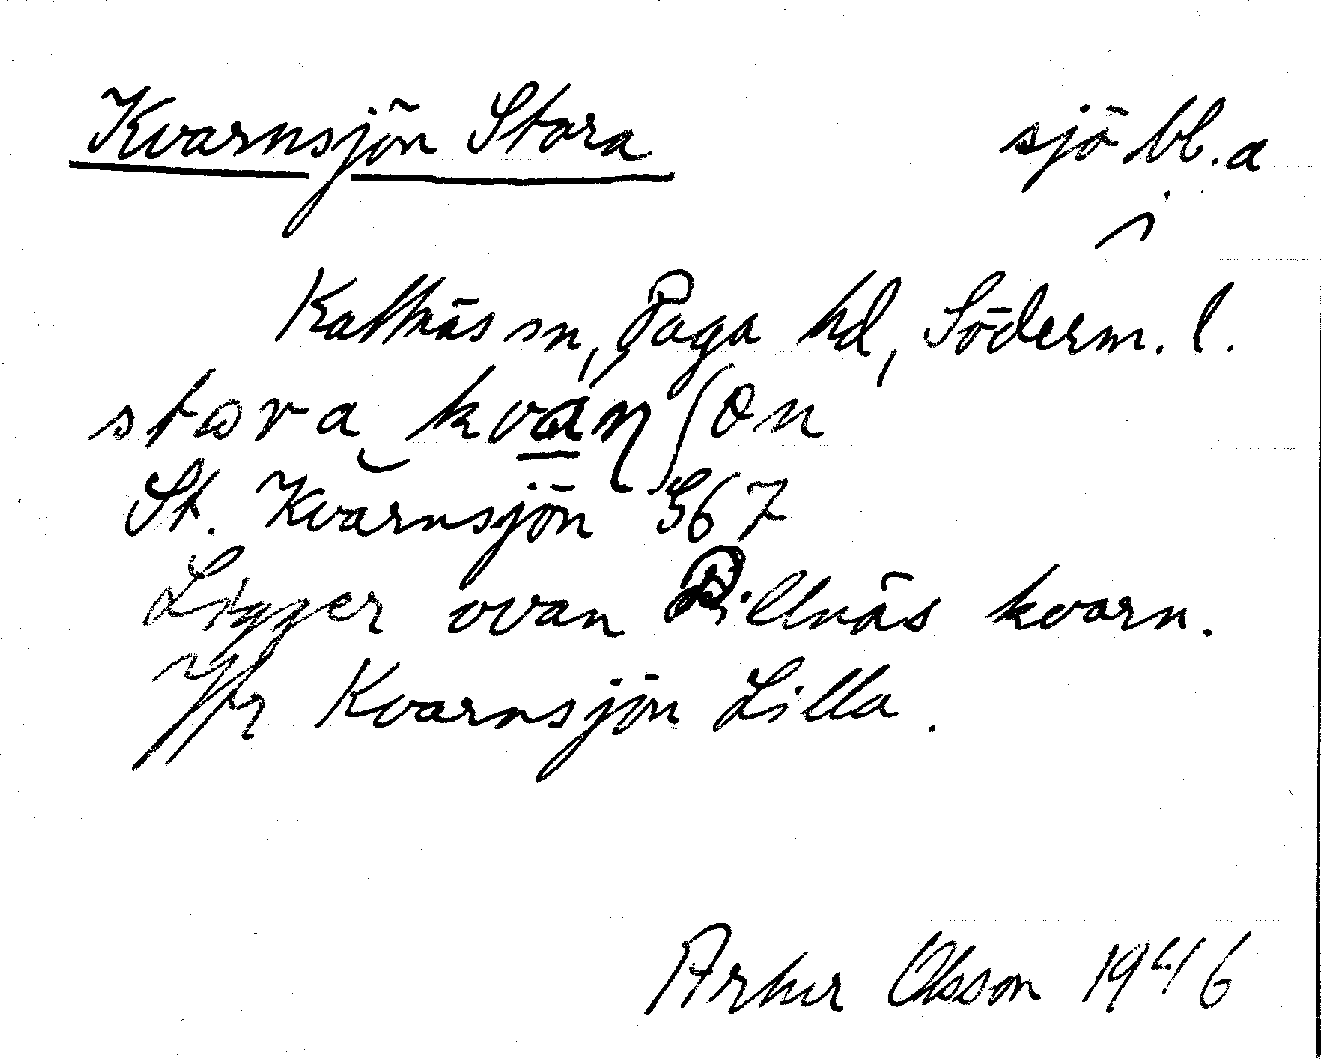 Kvarnsjön Stora sjö bl. a
i
Kattnäs sn, Daga hd, Söderm. l.
stora
St. Kvarnsjön 567
Ligger ovan Dillnäs kvarn.
Jfr Kvarnsjön Lilla.
Artur Olsson 1946